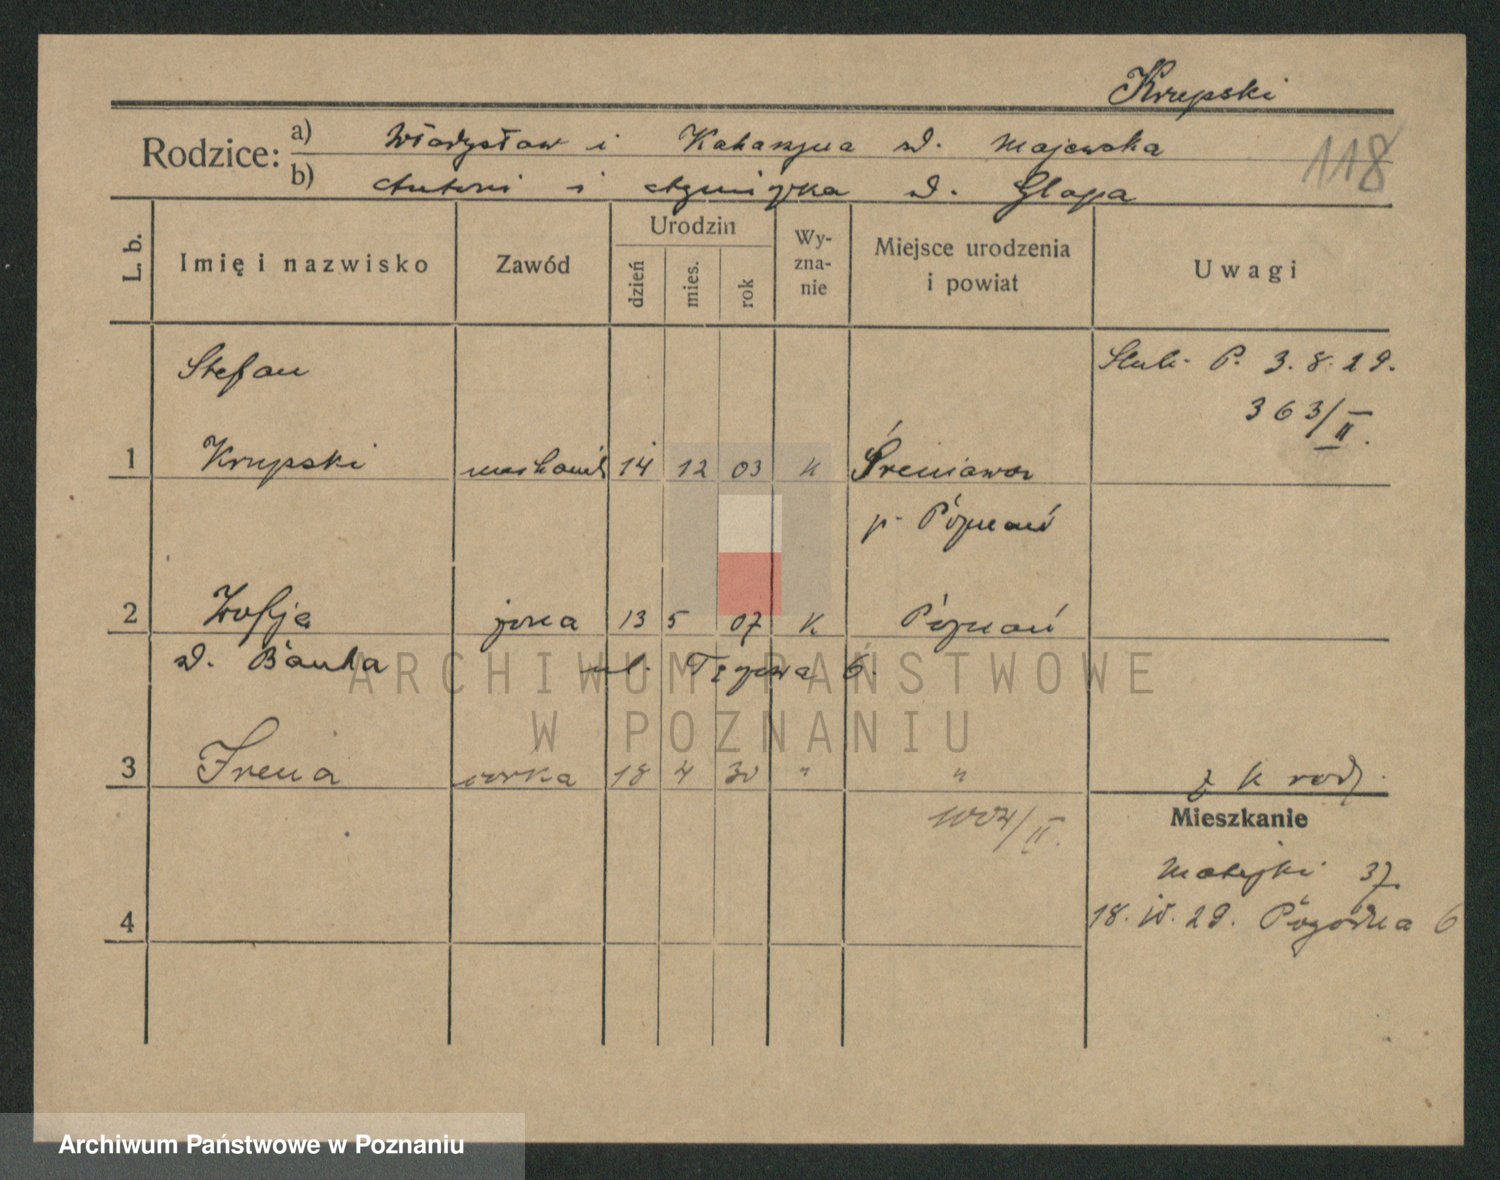 Krupski
Rodzice: a) Władysław i Katarzyna d. Majewska
b) Antoni i Agnieszka d. Glapa
118
L. b.
Imię i nazwisko
Zawód
Urodzin
dzień
mies.
rok
Wy-
zna-
nie
Miejsce urodzenia
i powiat
Uwagi
Stefan
P. 3. 8. 29.
363/II.
1 Krupski mechanik 14 12 03 K Śreniawa
p. Poznań
2 Zofja żona 13 5 07 K Poznań
d. Banka ul. 6.
ARCHIWUM PAŃSTWOWE
W POZNANIU
3 Irena córka 18 4 30 " " z k rodz.
/II.
Mieszkanie
Matejki 37
4
18. IV. 29. 6
Archiwum Państwowe w Poznaniu